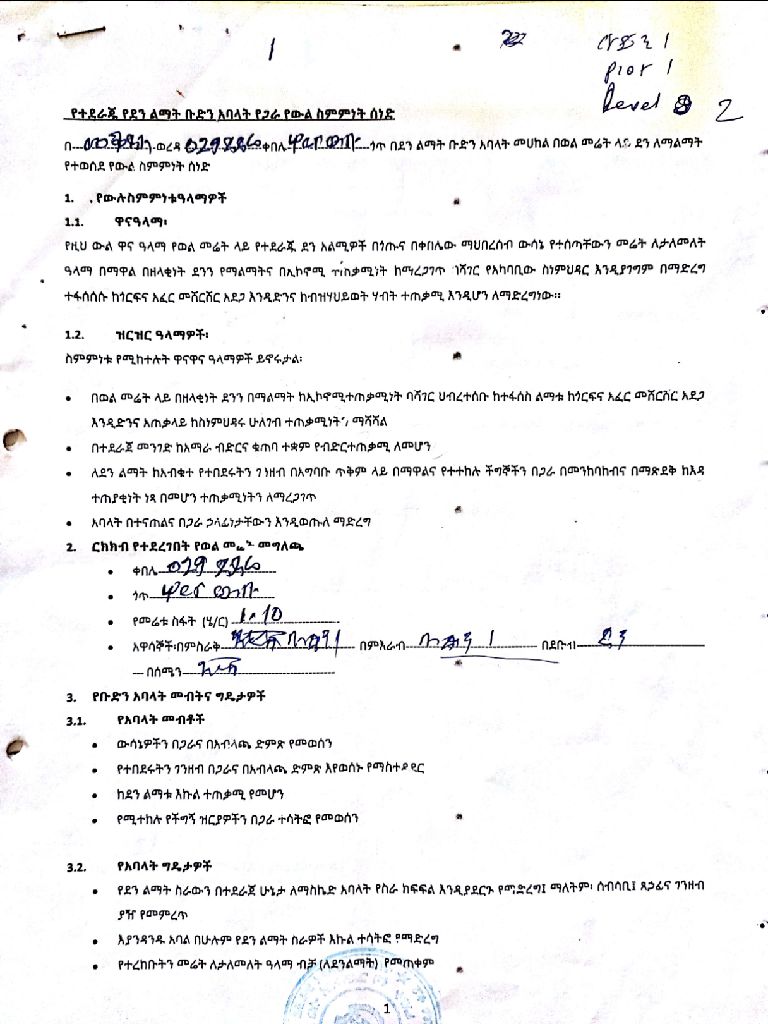 1
1
plot 1
Level 2
የተደራጁ የደን ልማት ቡድን አባላት የጋራ የውል ስምምነት ሰነድ
በ ወረዳ 029 ቀበሌ ጎጥ በደን ልማት ቡድን አባላት መሀከል በወል መሬት ላይ ደን ለማልማት
የተወሰደ የውል ስምምነት ሰነድ
1. የውሉስምምነቱዓላማዎች
1.1. ዋናዓላማ፡
የዚህ ውል ዋና ዓላማ የወል መሬት ላይ የተደራጁ ደን አልሚዎች በጎጡና በቀበሌው ማህበረሰብ ውሳኔ የተሰጣቸውን መሬት ለታለመለት
ዓላማ በማዋል በዘላቂነት ደንን የማልማትና በኢኮኖሚ ተጠቃሚነት ከማረጋገጥ ባሻገር የአካባቢው ስነምህዳር እንዲያገግም በማድረግ
ተፋሰሰሱ ከጎርፍና አፈር መሸርሸር አደጋ እንዲድንና ከብዝሃህይወት ሃብት ተጠቃሚ እንዲሆን ለማድረግነው።
1.2. ዝርዝር ዓላማዎች፡
ስምምነቱ የሚከተሉት ዋናዋና ዓላማዎች ይኖሩታል፡
• በወል መሬት ላይ በዘላቂነት ደንን በማልማት ከኢኮኖሚተጠቃሚነት ባሻገር ህብረተሰቡ ከተፋሰስ ልማቱ ከጎርፍና አፈር መሸርሸር አደጋ
እንዲድንና አጠቃላይ ከስነምህዳሩ ሁለገብ ተጠቃሚነቱ ማሻሻል
• በተደራጀ መንገድ ከአማራ ብድርና ቁጠባ ተቋም የብድርተጠቃሚ ለመሆን
• ለደን ልማት ከአብቁተ የተበደሩትን ገንዘብ በአግባቡ ጥቅም ላይ በማዋልና የተተከሉ ችግኞችን በጋራ በመንከባከብና በማጽደቅ ከእዳ
ተጠያቂነት ነጻ በመሆን ተጠቃሚነትን ለማረጋገጥ
• አባላት በተናጠልና በጋራ ኃላፊነታቸውን እንዲወጡለ ማድረግ
2. ርክክብ የተደረገበት የወል መሬት መግለጫ
• ቀበሌ 029
• ጎጥ
• የመሬቱ ስፋት (ሄ/ር) 1.10
• አዋሳኞች፡በምስራቅ በምእራብ በደቡብ ደን
በሰሜን
3. የቡድን አባላት መብትና ግዴታዎች
3.1. የአባላት መብቶች
• ውሳኔዎችን በጋራና በአብላጫ ድምጽ የመወሰን
• የተበደሩትን ገንዘብ በጋራና በአብላጫ ድምጽ እየወሰኑ የማስተዳደር
• ከደን ልማቱ እኩል ተጠቃሚ የመሆን
• የሚተከሉ የችግኝ ዝርያዎችን በጋራ ተሳትፎ የመወሰን
3.2. የአባላት ግዴታዎች
• የደን ልማት ስራውን በተደራጀ ሁኔታ ለማስኬድ አባላት የስራ ክፍፍል እንዲያደርጉ የማድረግ፤ ማለትም፡ ሰብሳቢ፤ ጸኃፊና ገንዘብ
ያዥ የመምረጥ
• እያንዳንዱ አባል በሁሉም የደን ልማት ስራዎች እኩል ተሳትፎ የማድረግ
• የተረከቡትን መሬት ለታለመለት ዓላማ ብቻ (ለደንልማት) የመጠቀም
1